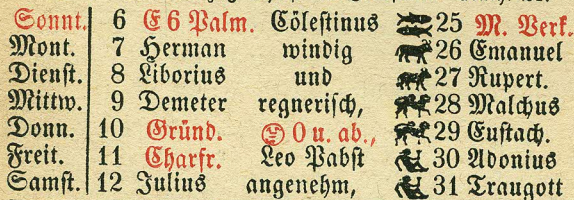 Sonnt. 6 E 6 Palm. Cölestinus 25 M. Verk.
Mont. 7 Herman windig 26 Emanuel
Dienst. 8 Liborius und 27 Rupert.
Mittw. 9 Demeter regnerisch, 28 Malchus
Donn. 10 Gründ. 0 u. ab., 29 Eustach.
Freit. 11 Charfr. Leo Pabst 30 Adonius
Samst. 12 Julius angenehm, 31 Traugott